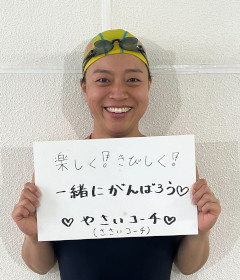 楽しく！きびしく！
一緒にがんばろう♡
♡やさいコーチ♡
(ささいコーチ)